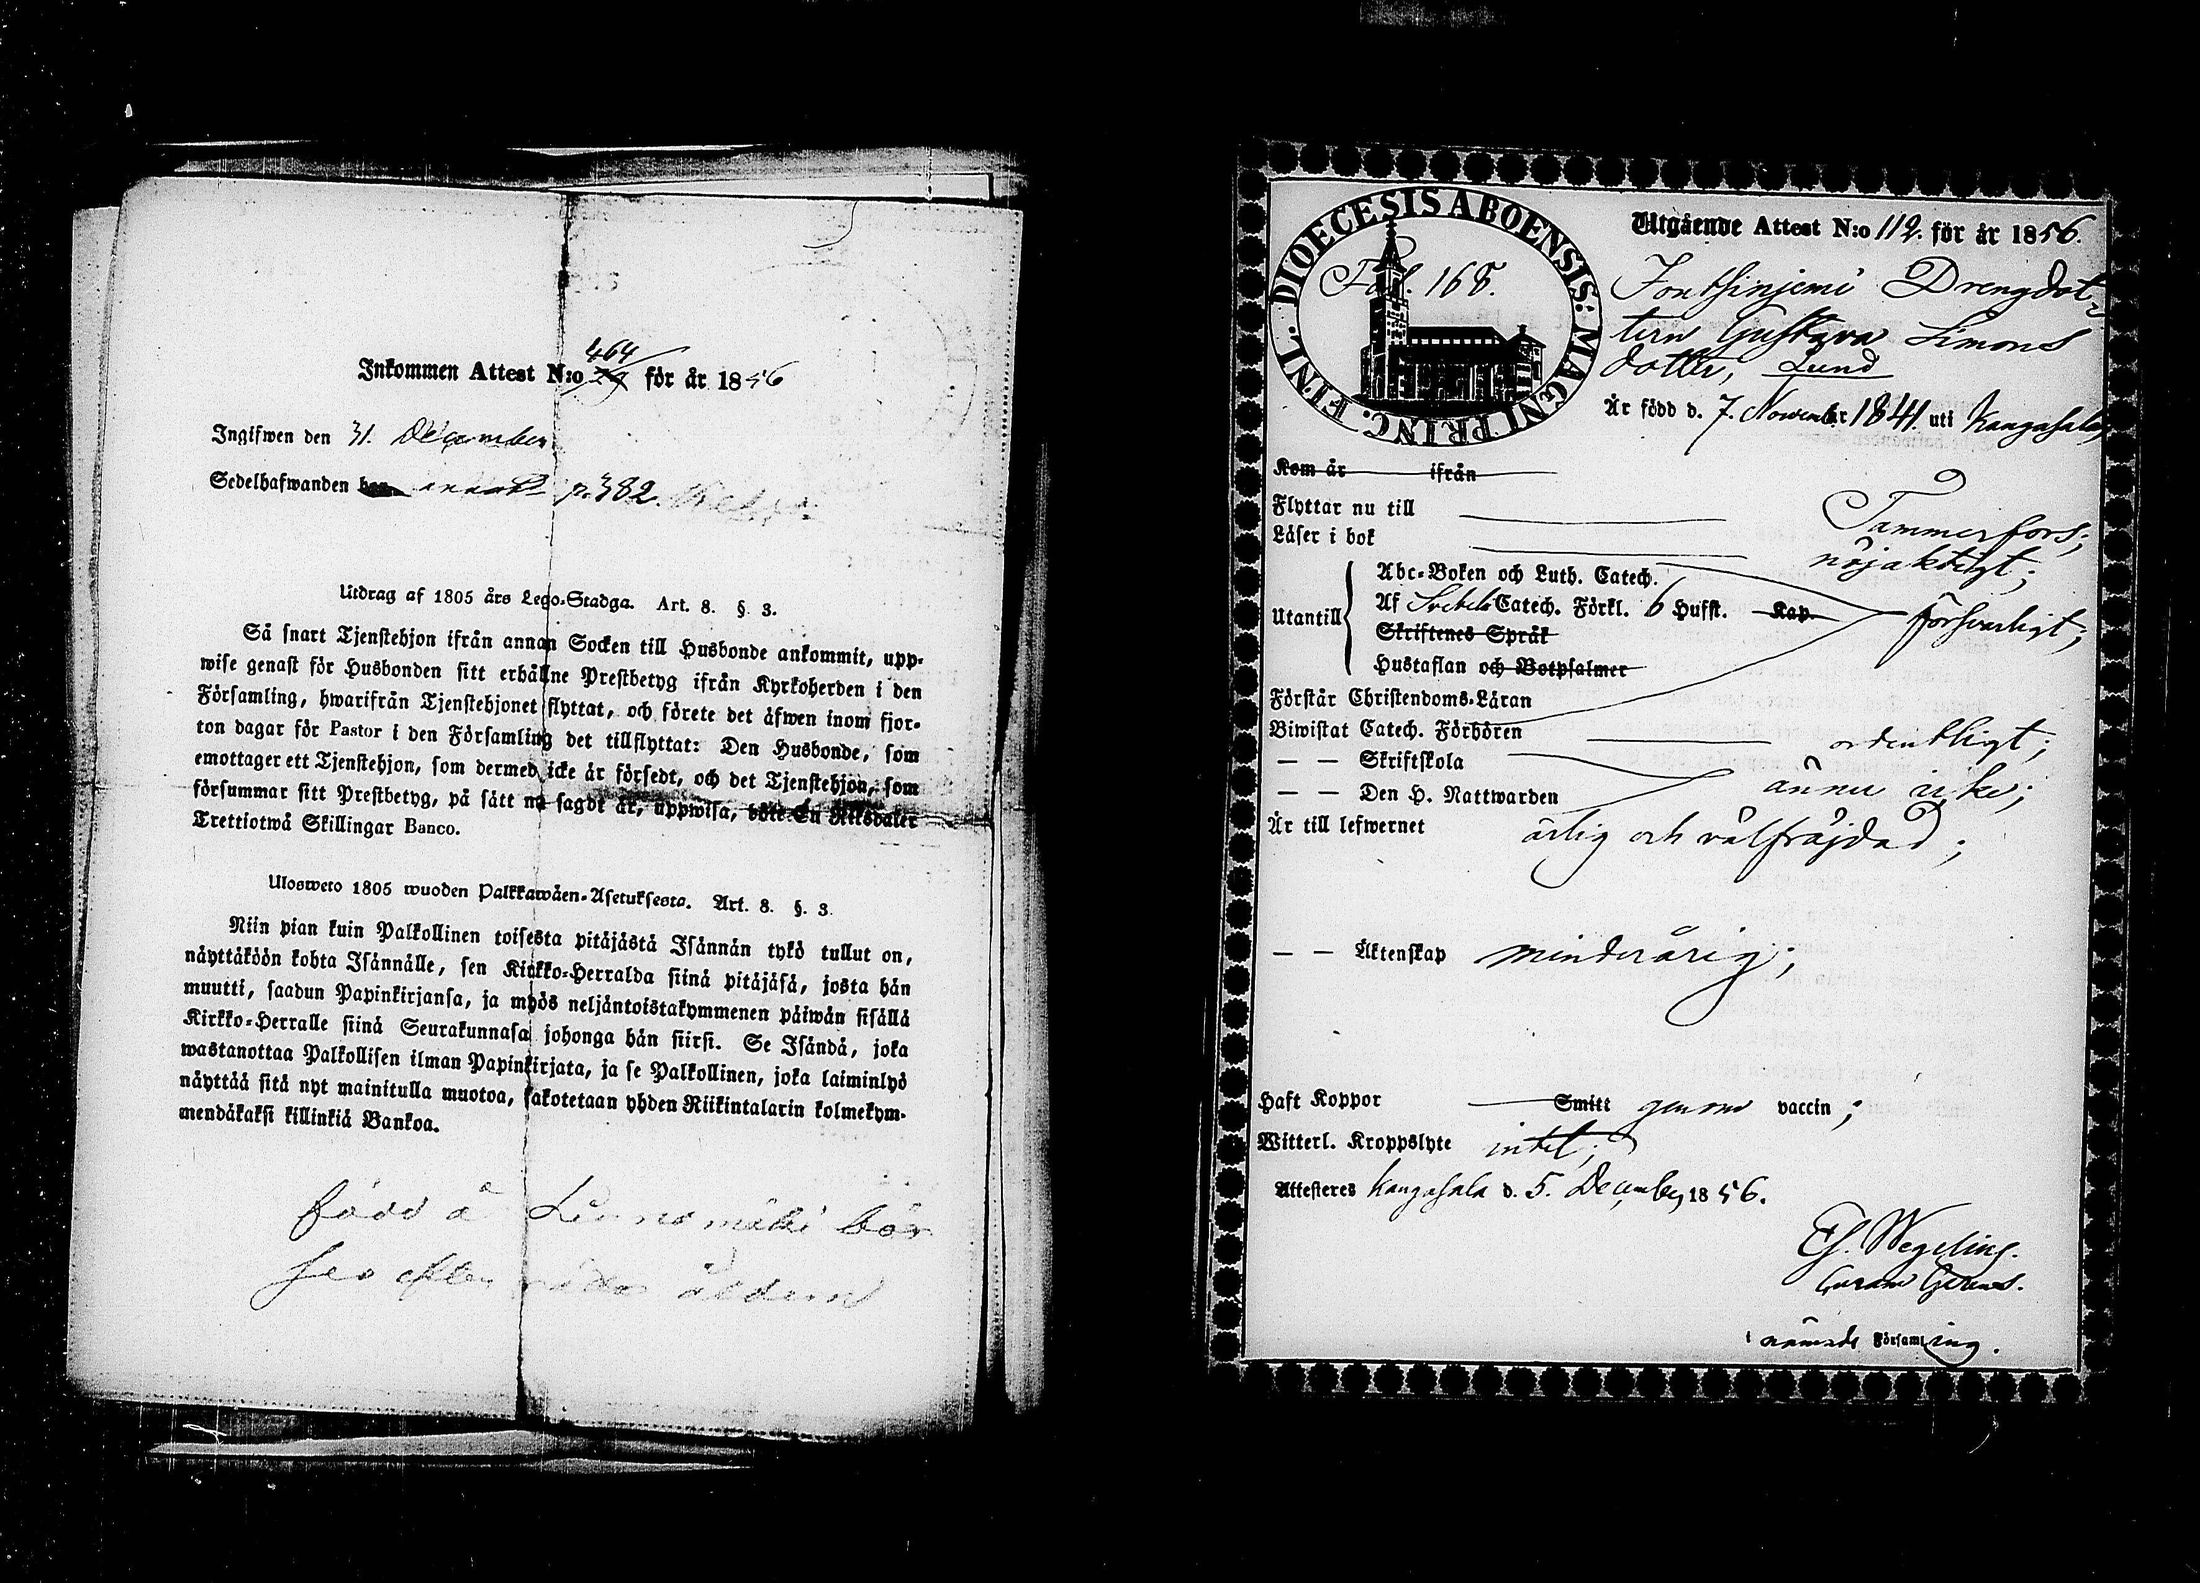 Inkommen Attest N:o 29 464 för år 1856
Ingifwen den 31. December
Sedelhafwanden p. 382.
Utdrag af 1805 års Lego-Stadga. Art. 8. § 3.
Så snart Tjenstehjon ifrån annan Socken till Husbonde ankommit, upp-
wise genast för Husbonden sitt erhållne Prestbetyg ifrån Kyrkoherden i den
Församling, hwarifrån Tjenstehjonet flyttat, och förete det äfwen inom fjor-
ton dagar för Pastor i den Församling det tillflyttat: Den Husbonde, som
emottager ett Tjenstehjon, som dermed icke är försedt, och det Tjenstehjon, som
försummar sitt Prestbetyg, på sätt nu sagdt är, uppwisa, böte En Riksdaler
Trettiotwå Skillingar Banco.
Ulosweto 1805 wuoden Palkkawäen-Asetuksesta. Art. 8. §. 3.
Niin pian kuin Palkollinen toisesta pitäjästä Isännän tykö tullut on,
näyttäköön kohta Isännälle, sen Kirkko-Herralda siinä pitäjäsä, josta hän
muutti, saadun Papinkirjansa, ja myös neljäntoistakymmenen päiwän sisällä
Kirkko-Herralle siinä Seurakunnasa johonga hän siirsi. Se Isändä, joka
wastanottaa Palkollisen ilman Papinkirjata, ja se Palkollinen, joka laiminlyö
näyttää sitä nyt mainitulla muotoa, sakotetaan yhden Riikintalarin kolmekym-
mendäkaksi killinkiä Bankoa.
född å Linnamäki bör
ses efter äldern
DIOECESIS ABOENSIS: MAGNI PRINC. FINL.
Fol. 168.
Utgående Attest N:o 112. för år 1856.
Drengdot-
tern Gustava Simons
dotter, Lund
Är född d. 7. November 1841. uti Kangasala,
Kom år ifrån
Flyttar nu till Tammerfors;
Läser i bok nöjaktigt;
Utantill
Abc-Boken och Luth. Catech.
Af Svebeli Catech. Förkl. 6 Hufst. Kap. försvarligt;
Skriftenes Språk
Hustaflan och Botpsalmer
Förstår Christendoms-Läran
Biwistat Catech. Förhören ordentligt;
— — Skriftskola
— — Den H. Nattwarden ännu icke;
Är till lefwernet ärlig och välfräjdad;
— — Äktenskap minderårig;
Haft Koppor Smitt genom vaccin;
Witterl. Kroppslyte intet;
Attesteres Kangasala d. 5. December 1856.
Wegelius.
i nämnde Församling.